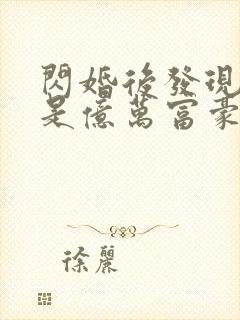 閃婚後發現
是億萬富豪
徐麗